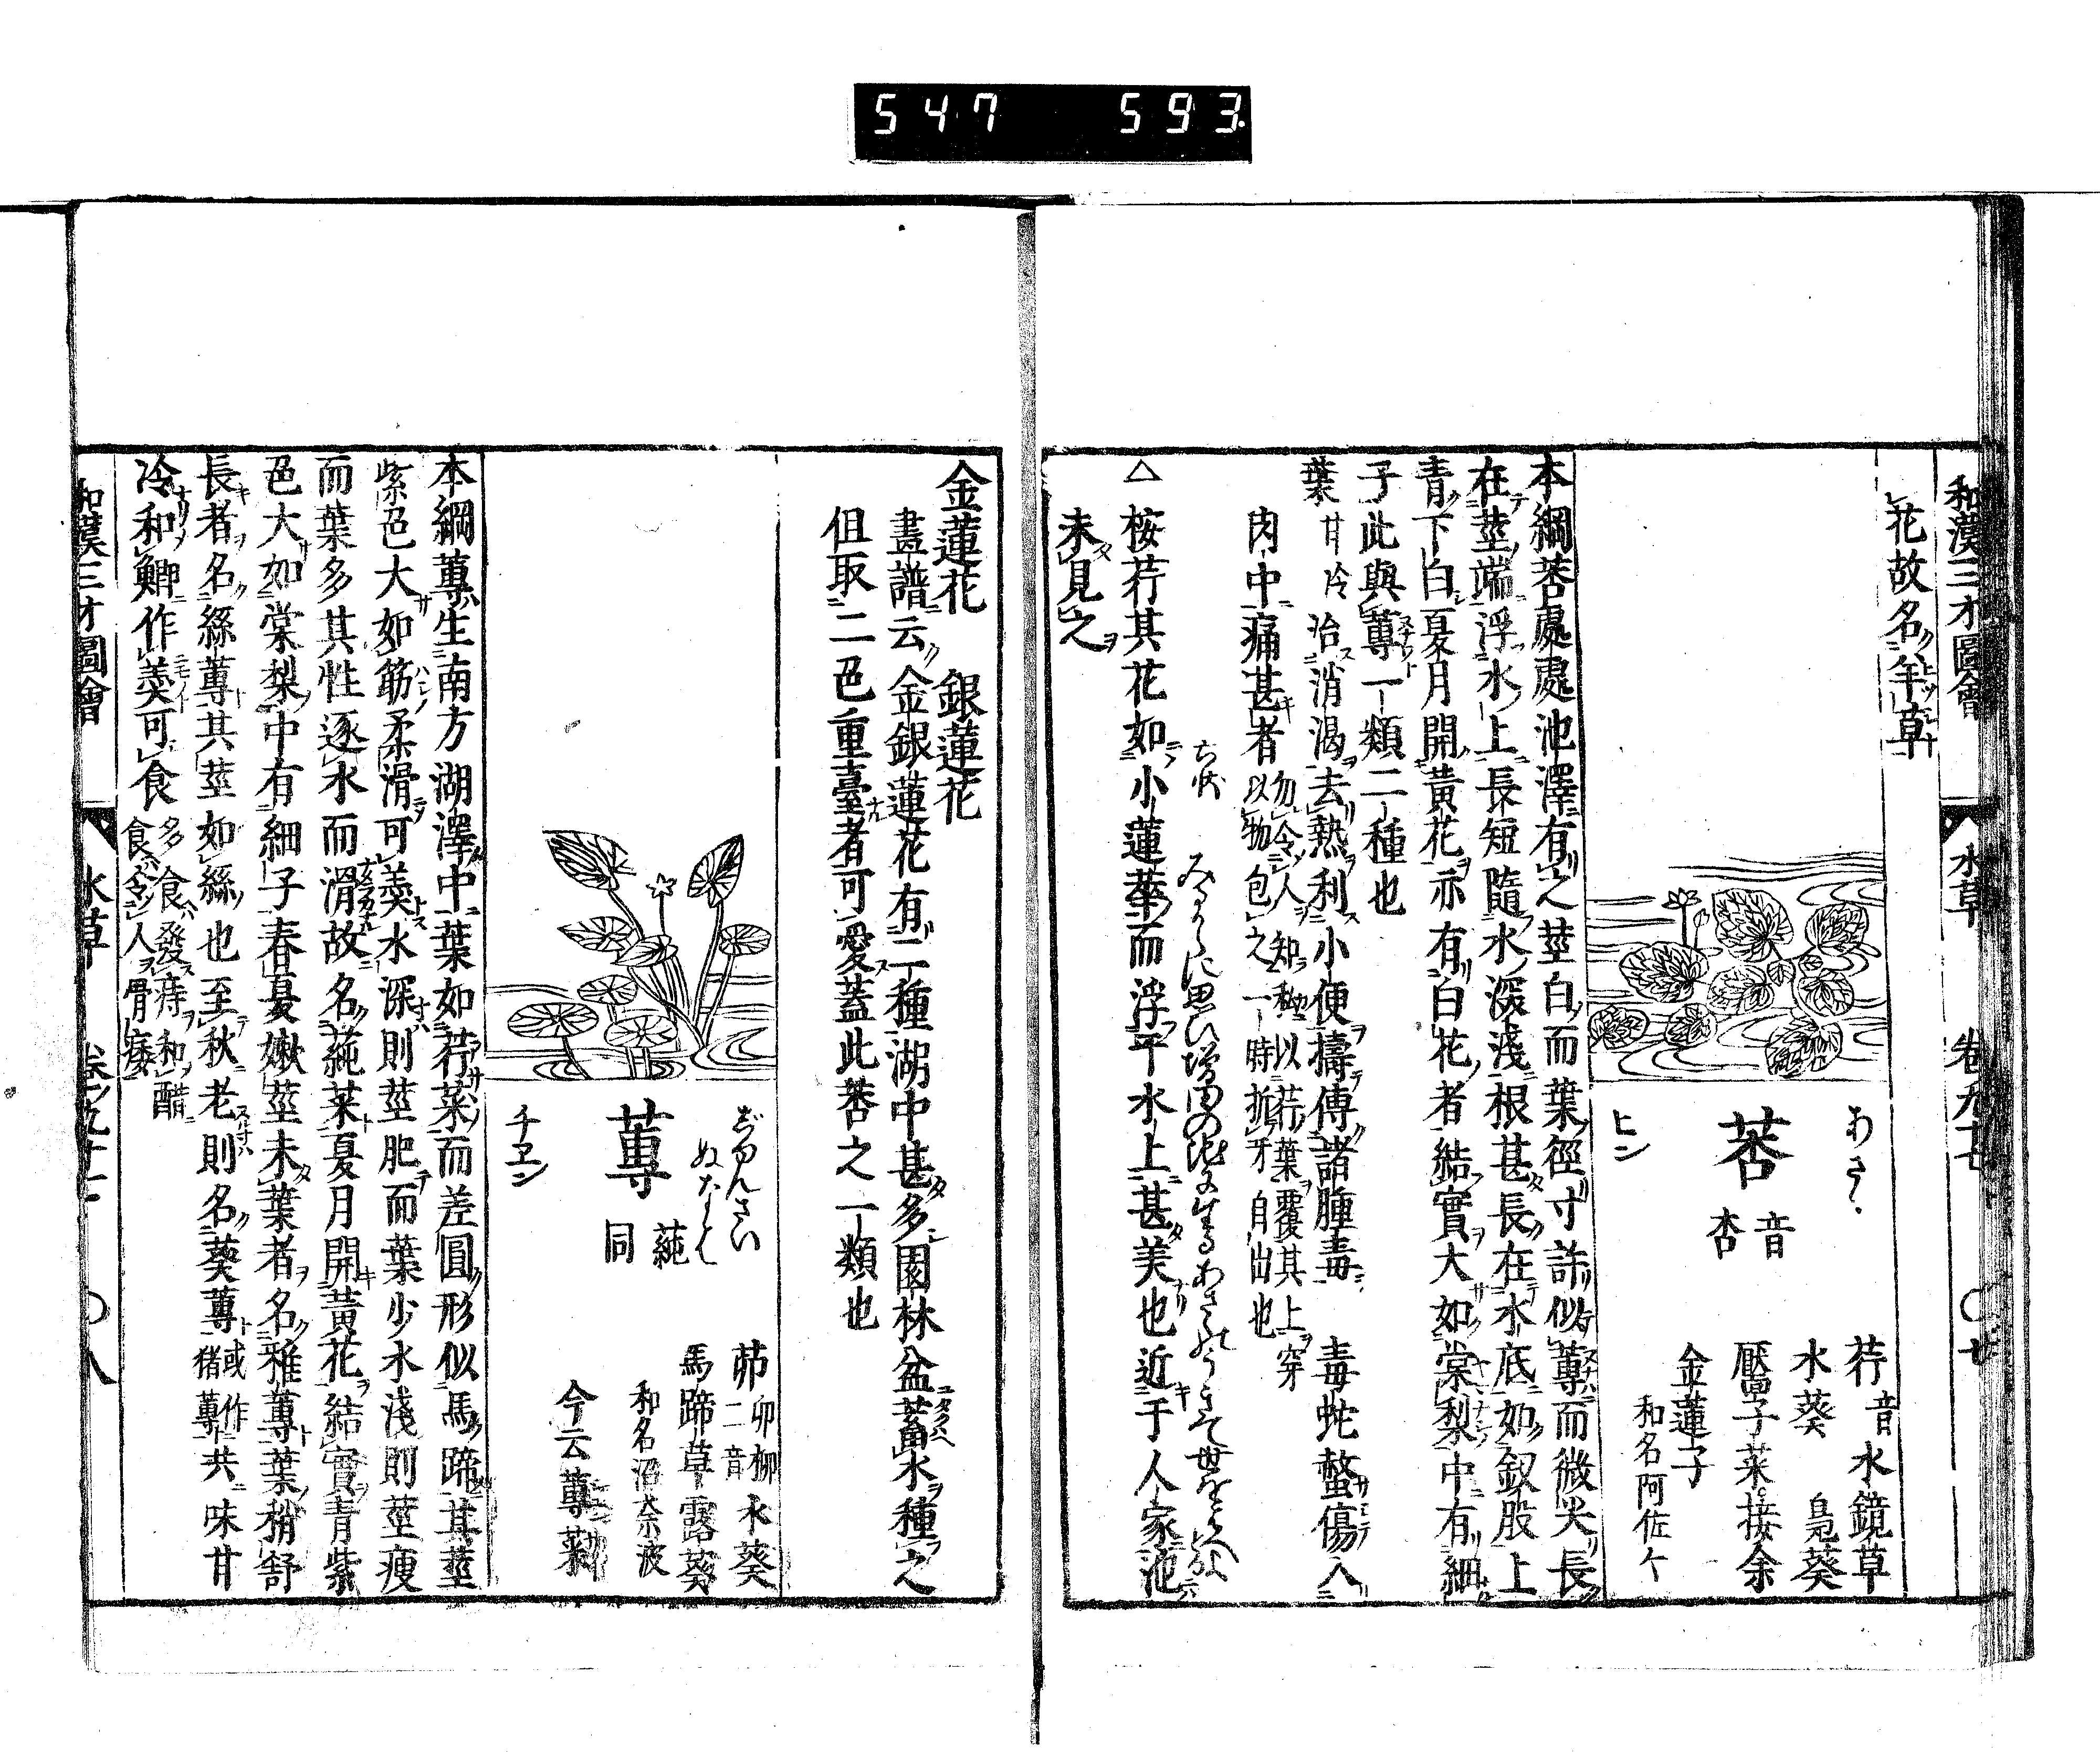 547 593
和漢三才圖會 水草 卷九十七 ○七
花故名午草
あさゝ
莕 音杏
ヒン
荇 音 水鏡草
水葵 鳬葵
靨子菜 接余
金蓮子
和名阿佐々
本綱莕處處池澤有之莖白而葉徑寸許似蓴而微尖長
在莖端浮水上長短隨水深淺根甚長在水底如釵股上
青下白夏月開黃花亦有白花者結實大如棠梨中有細
子此與蓴一類二種也
葉 甘冷 治消渴去熱利小便擣傅諸腫毒 毒蛇螫傷入
肉中痛甚者 勿令人知私以荇葉覆其上穿
以物包之一時折牙自出也
△ 桉荇其花如小蓮華而浮乎水上甚美也近于人家池
未見之
金蓮花 銀蓮花
畫譜云金銀蓮花有二種湖中甚多園林盆畜水種之
但取二色重臺者可愛蓋此莕之一類也
じゆんさい
ぬなは
蓴 蒓同
チヱン
茆 卯柳二音 水葵
馬蹄草 露葵
和名沼奈波
今云蓴菜
本綱蓴生南方湖澤中葉如荇菜而差圓形似馬蹄其莖
紫色大如筯柔滑可羹水深則莖肥而葉少水淺則莖瘦
而葉多其性逐水而滑故名蒓菜夏月開黃花結實青紫
色大如棠梨中有細子春夏嫩莖未葉者名稚蓴葉稍舒
長者名絲蓴其莖如絲也至秋老則名葵蓴 或作猪蓴 共味甘
冷和鯽作羹可食 多食發痔和醋
食令人骨痿
和漢三才圖會 水草 卷ノ九十七 ○八